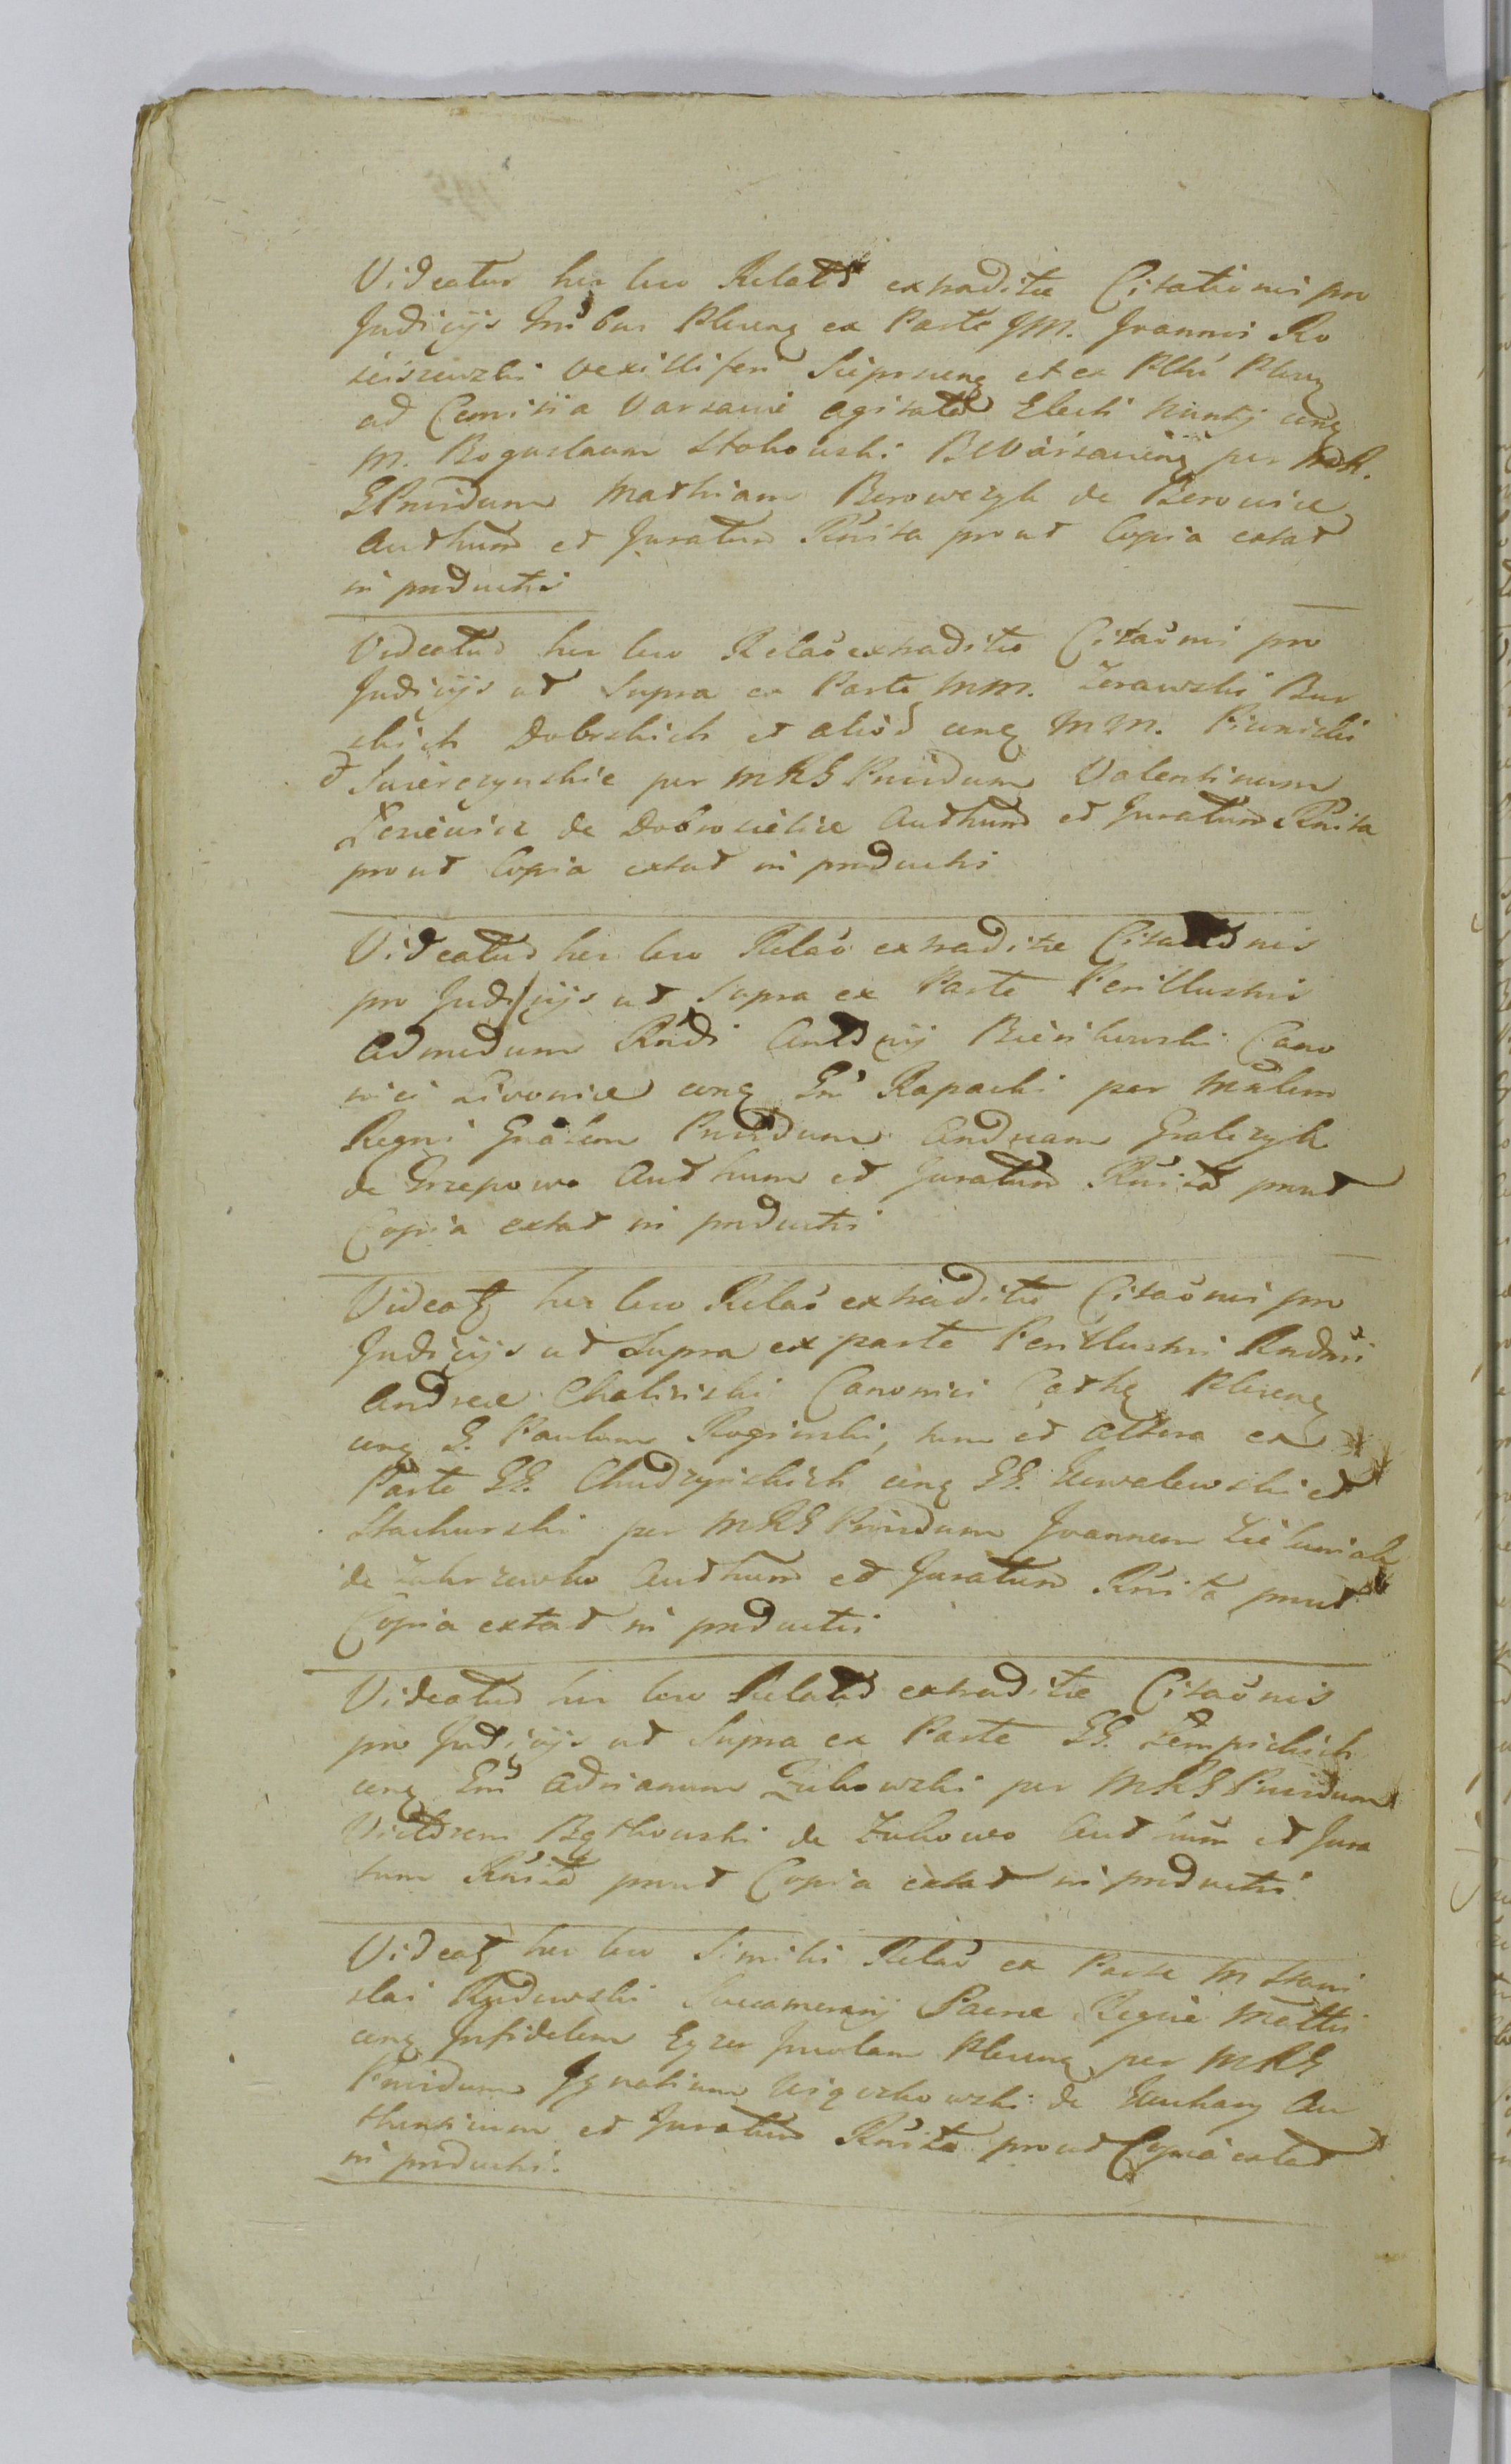 Videatur hic loco Relatio extraditæ Citationis pro
Judicijs Plocen ex Parte JM. Joannis Ro
sciszewski Vexilliferi Sieprscen et ex Pltu Plocen
ad Comitia Varsaviæ agitata Electi Nuntij
M. Boguslaum Stokowski BWarsavien per MR.
GPnvidum Mathiam Borowczyk de Borowice
Authum et Juratum Rnita prout Copia extat
in pnductis
Videatur hic loco Relaõ extraditæ Citaõnis pro
Judicijs ut Supra ex Parte MM. Zorawski Bur
skich Dobrskich et alior cnq MM. Piwnicki
et Swierczynskie per MRG Pnvidum Valentinum
de Dobrosielice Authum et Juratum Rnita
prout Copia extat in pnductis
Videatur hic loco Relaõ extraditæ Citationis
pro Judicijs ut Supra ex Parte Perillustris
Admodum Rndi Antonij Bienkowski Cano
nici Livoniæ cnq Gm Rapacki per Mnlem
Regni Gnãlem Pnvidum Andream Gralczyk
de Grzepowo Authum et Juratum Rnita prout
Copia extat in pnductis
Videatq hic loco Relaõ extraditæ Citaõnis pro
Judicijs ut Supra ex parte Perillustris Rndmi
Andreæ Chalinski Canonici Cathq Plocenq
cnq G. Paulum Roginski, tum et altera ex
Parte GG. Chudzynskich cnq GG. Kowalewski et
Stachurski per MRG Pnvidum Joannem Zieluniak
de Zakrzewko Authum et Juratum Rnita prout
Copia extat in pnductis
Videatur hic loco Relatio extraditæ Citaõnis
pro Judicijs ut Supra ex Parte GG. Zempickich
cnq Gm Adrianum Zukowski per MRG Pnvidum
Victorem Bętkowski de Zukowo Authum et Jura
tum Rnita prout Copia extat in pnductis
Videatq hic loco Similis Relaõ ex Parte M Stani
slai Rydzewski Succamerarij Sacræ Regiæ Mattis
cnq Infidelem Eyzer Incolam Plocenq per MRG
Pnvidum Ignatium de Kuchary Au
thenticum et Juratum Rnita prout Copia extat
in pnductis.